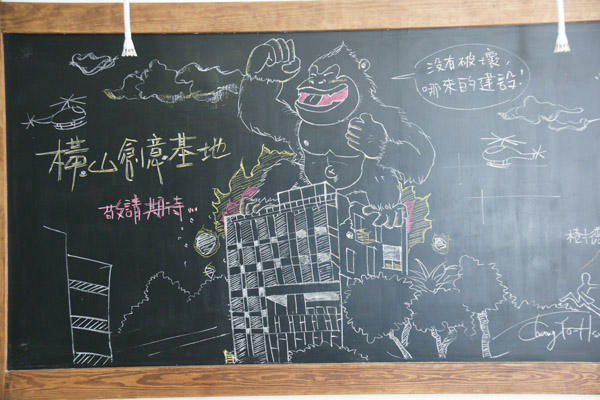 橫山創意基地
敬請期待...
沒有破壞,
哪來的建設!